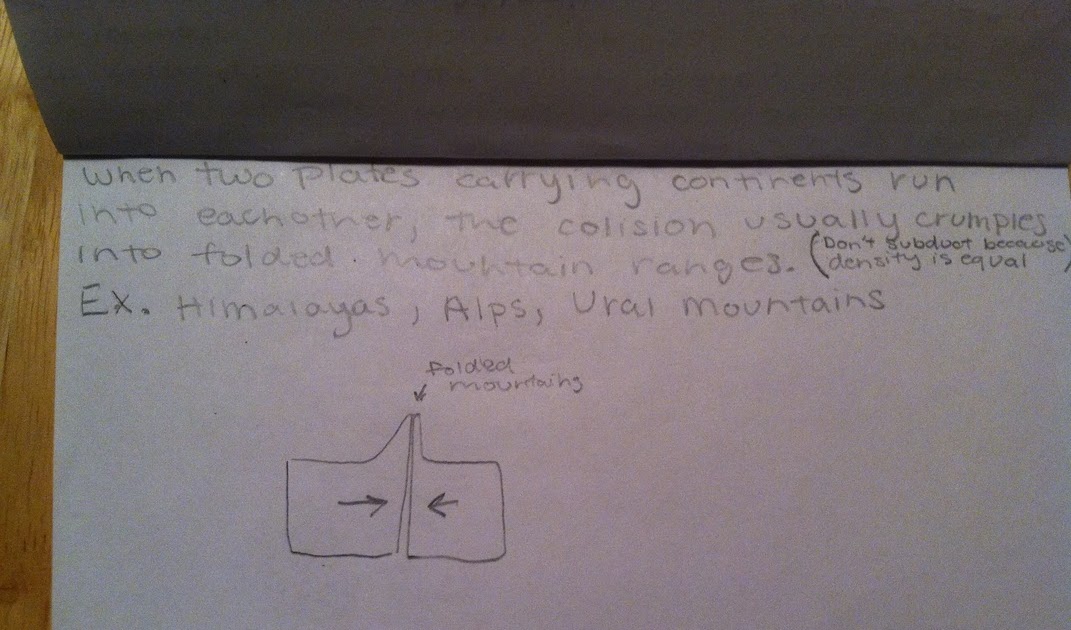 When two plates carrying continents run
into eachother, the colision usually crumples
into folded mountain ranges. (Don't subduct because
density is equal)
Ex. Himalayas, Alps, Ural mountains
folded
mountains